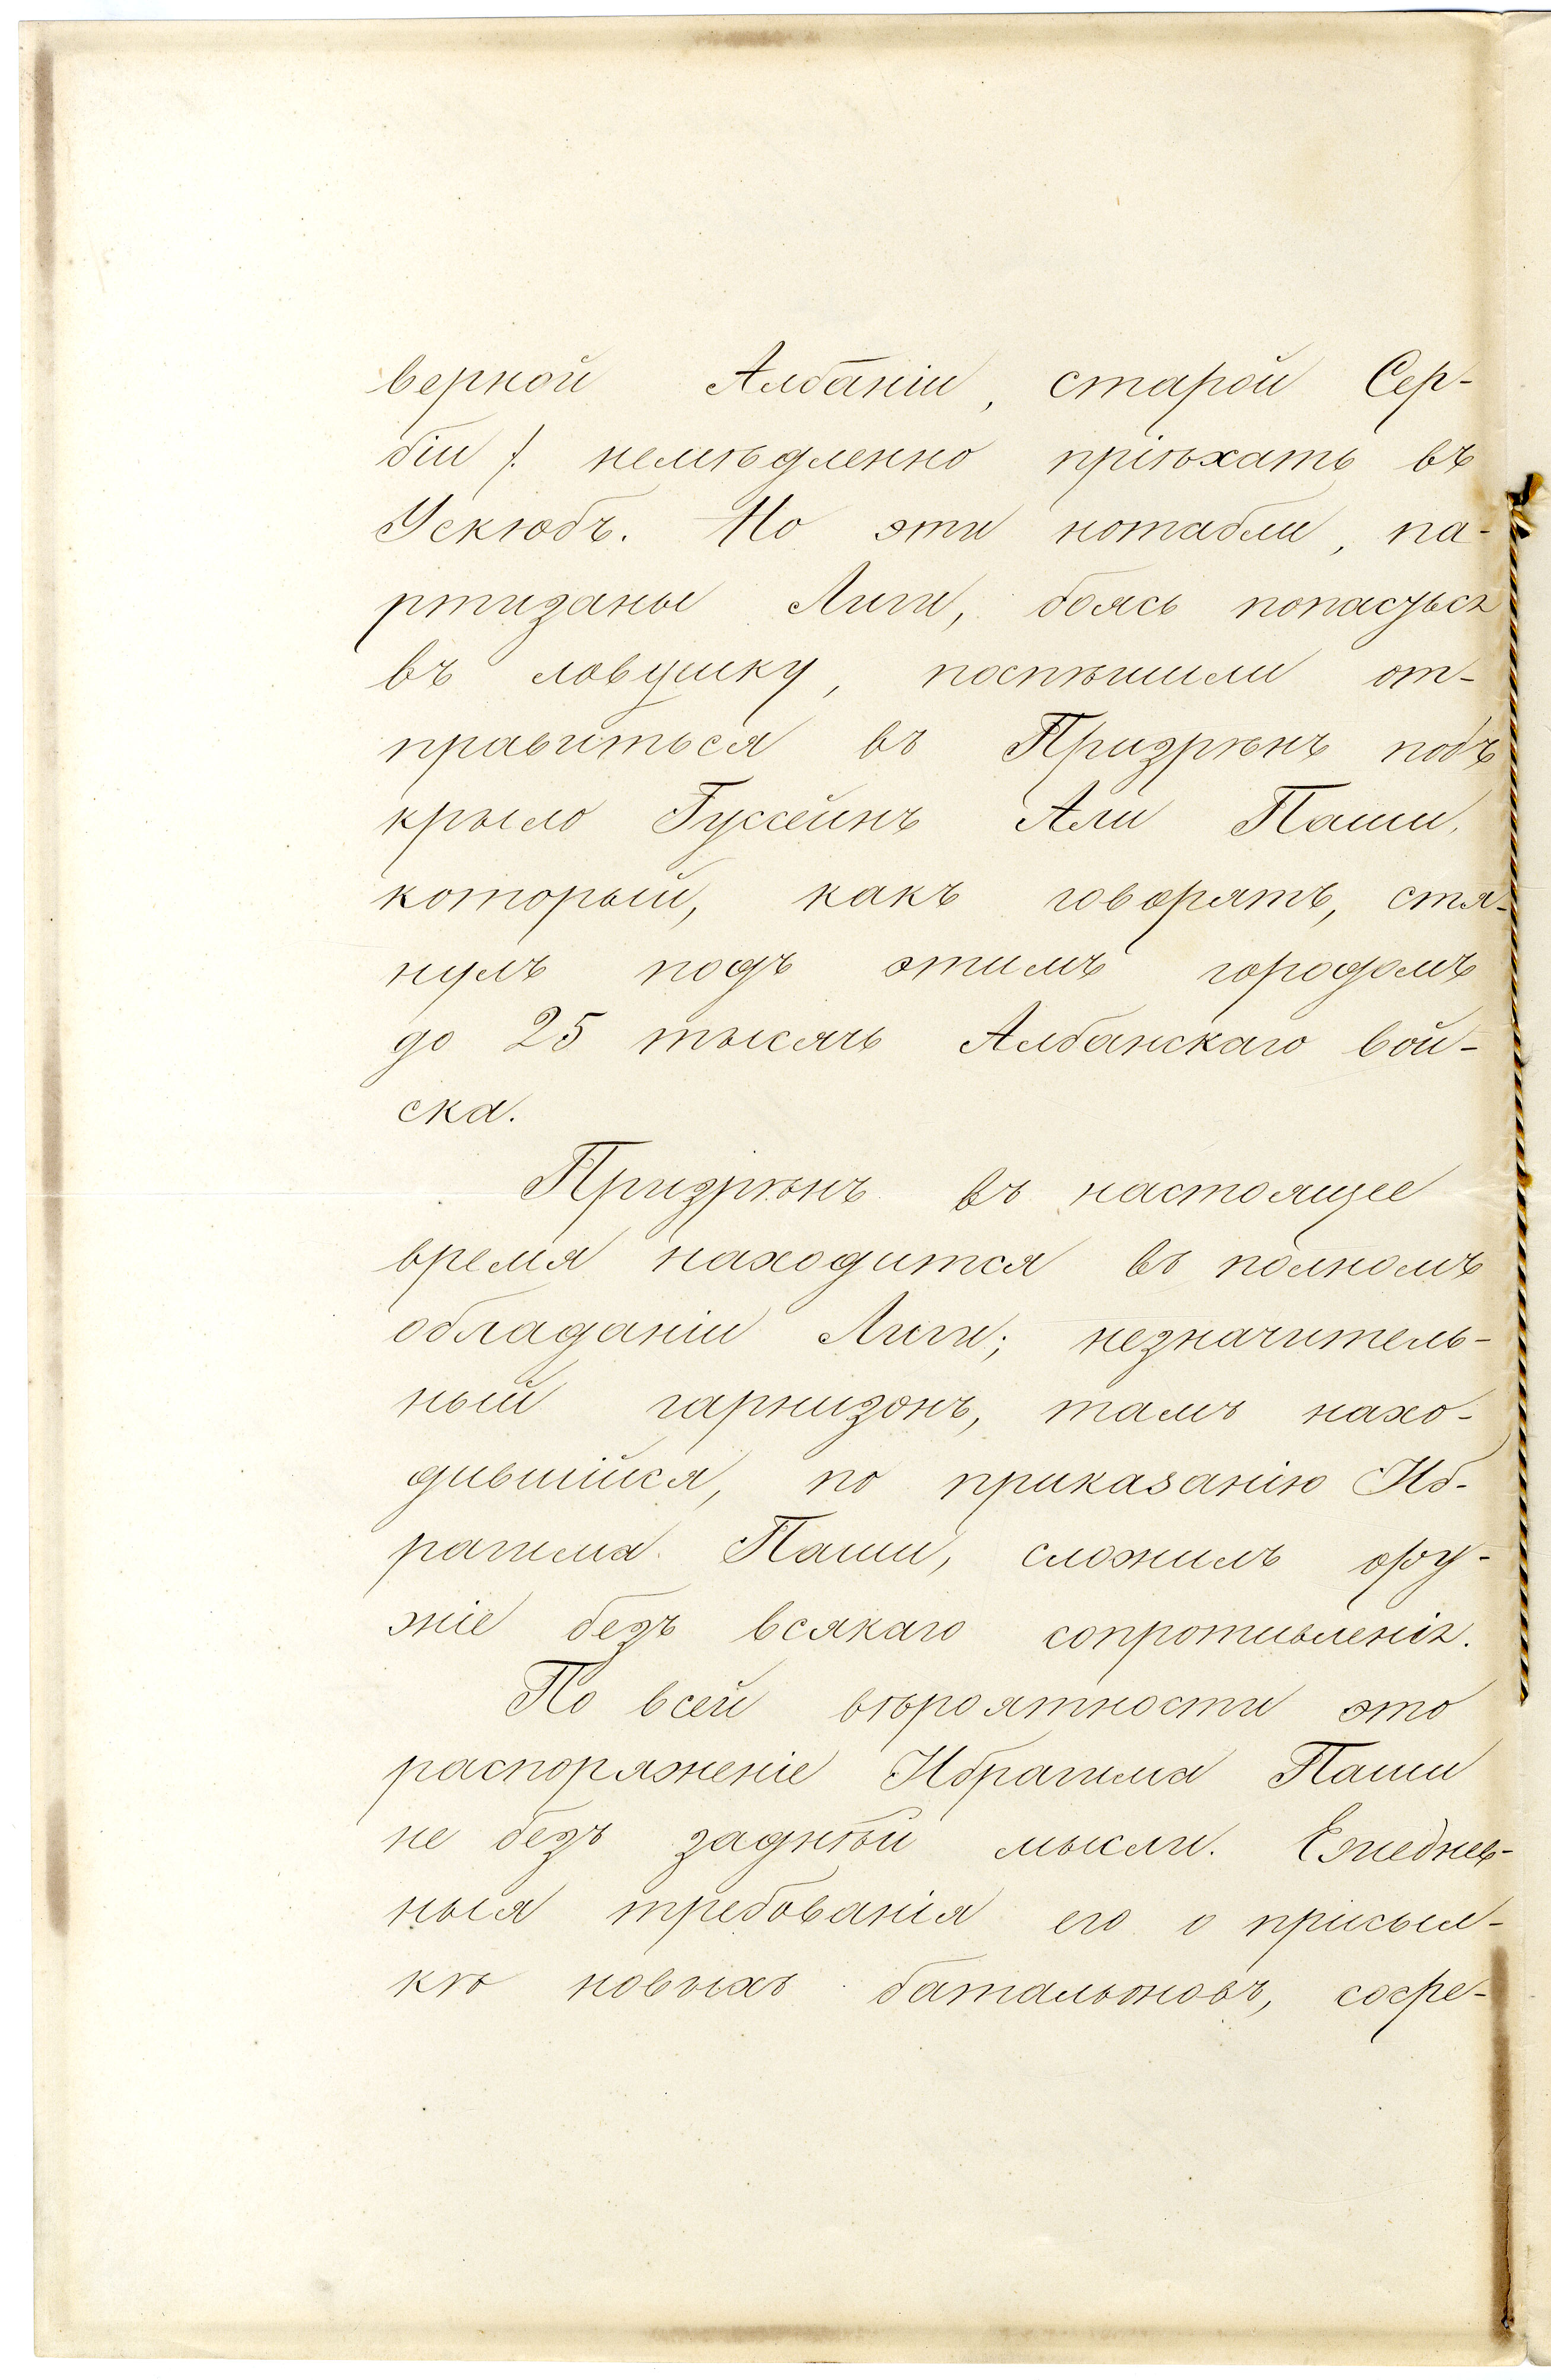 верной Албаніи, старой Сер-
біи /. немѣдленно пріѣхать въ
Ускюбъ. Но эти нотабли, па-
ртизаны Лиги, боясь попасться
въ ловушку, поспѣшили от-
правиться въ Призрѣнъ подъ
крыло Гуссейнъ Али Паши,
который, какъ говорятъ, стя-
нулъ подъ этимъ городомъ
до 25 тысячъ Албанскаго вой-
ска.
Призрѣнъ въ настоящее
время находится въ полномъ
обладаніи Лиги; незначитель-
ный гарнизонъ, тамъ нахо-
дившійся, по приказанію Иб-
рагима Паши, сложилъ ору-
жіе безъ всякаго сопротивленія.
По всей вѣроятности это
распоряженіе Ибрагима Паши
не безъ задней мысли. Ежеднев-
ныя требованія его о присыл-
кѣ новыхъ батальоновъ, сосре-